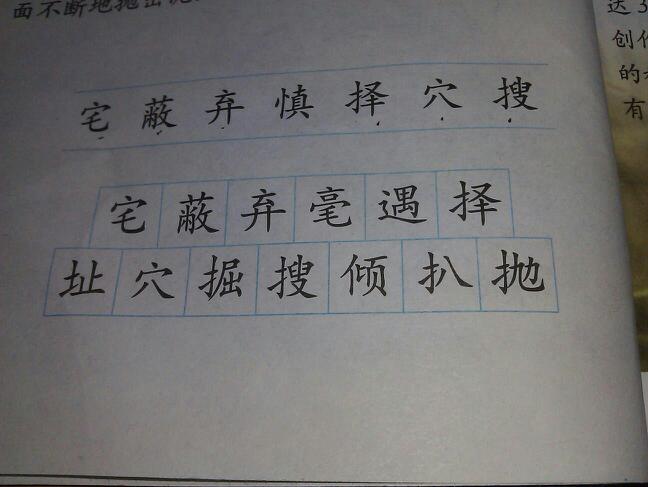 面不断地抛出泥
达3
创作
的
有
宅 蔽 弃 慎 择 穴 搜
宅 蔽 弃 毫 遇 择
址 穴 掘 搜 倾 扒 抛